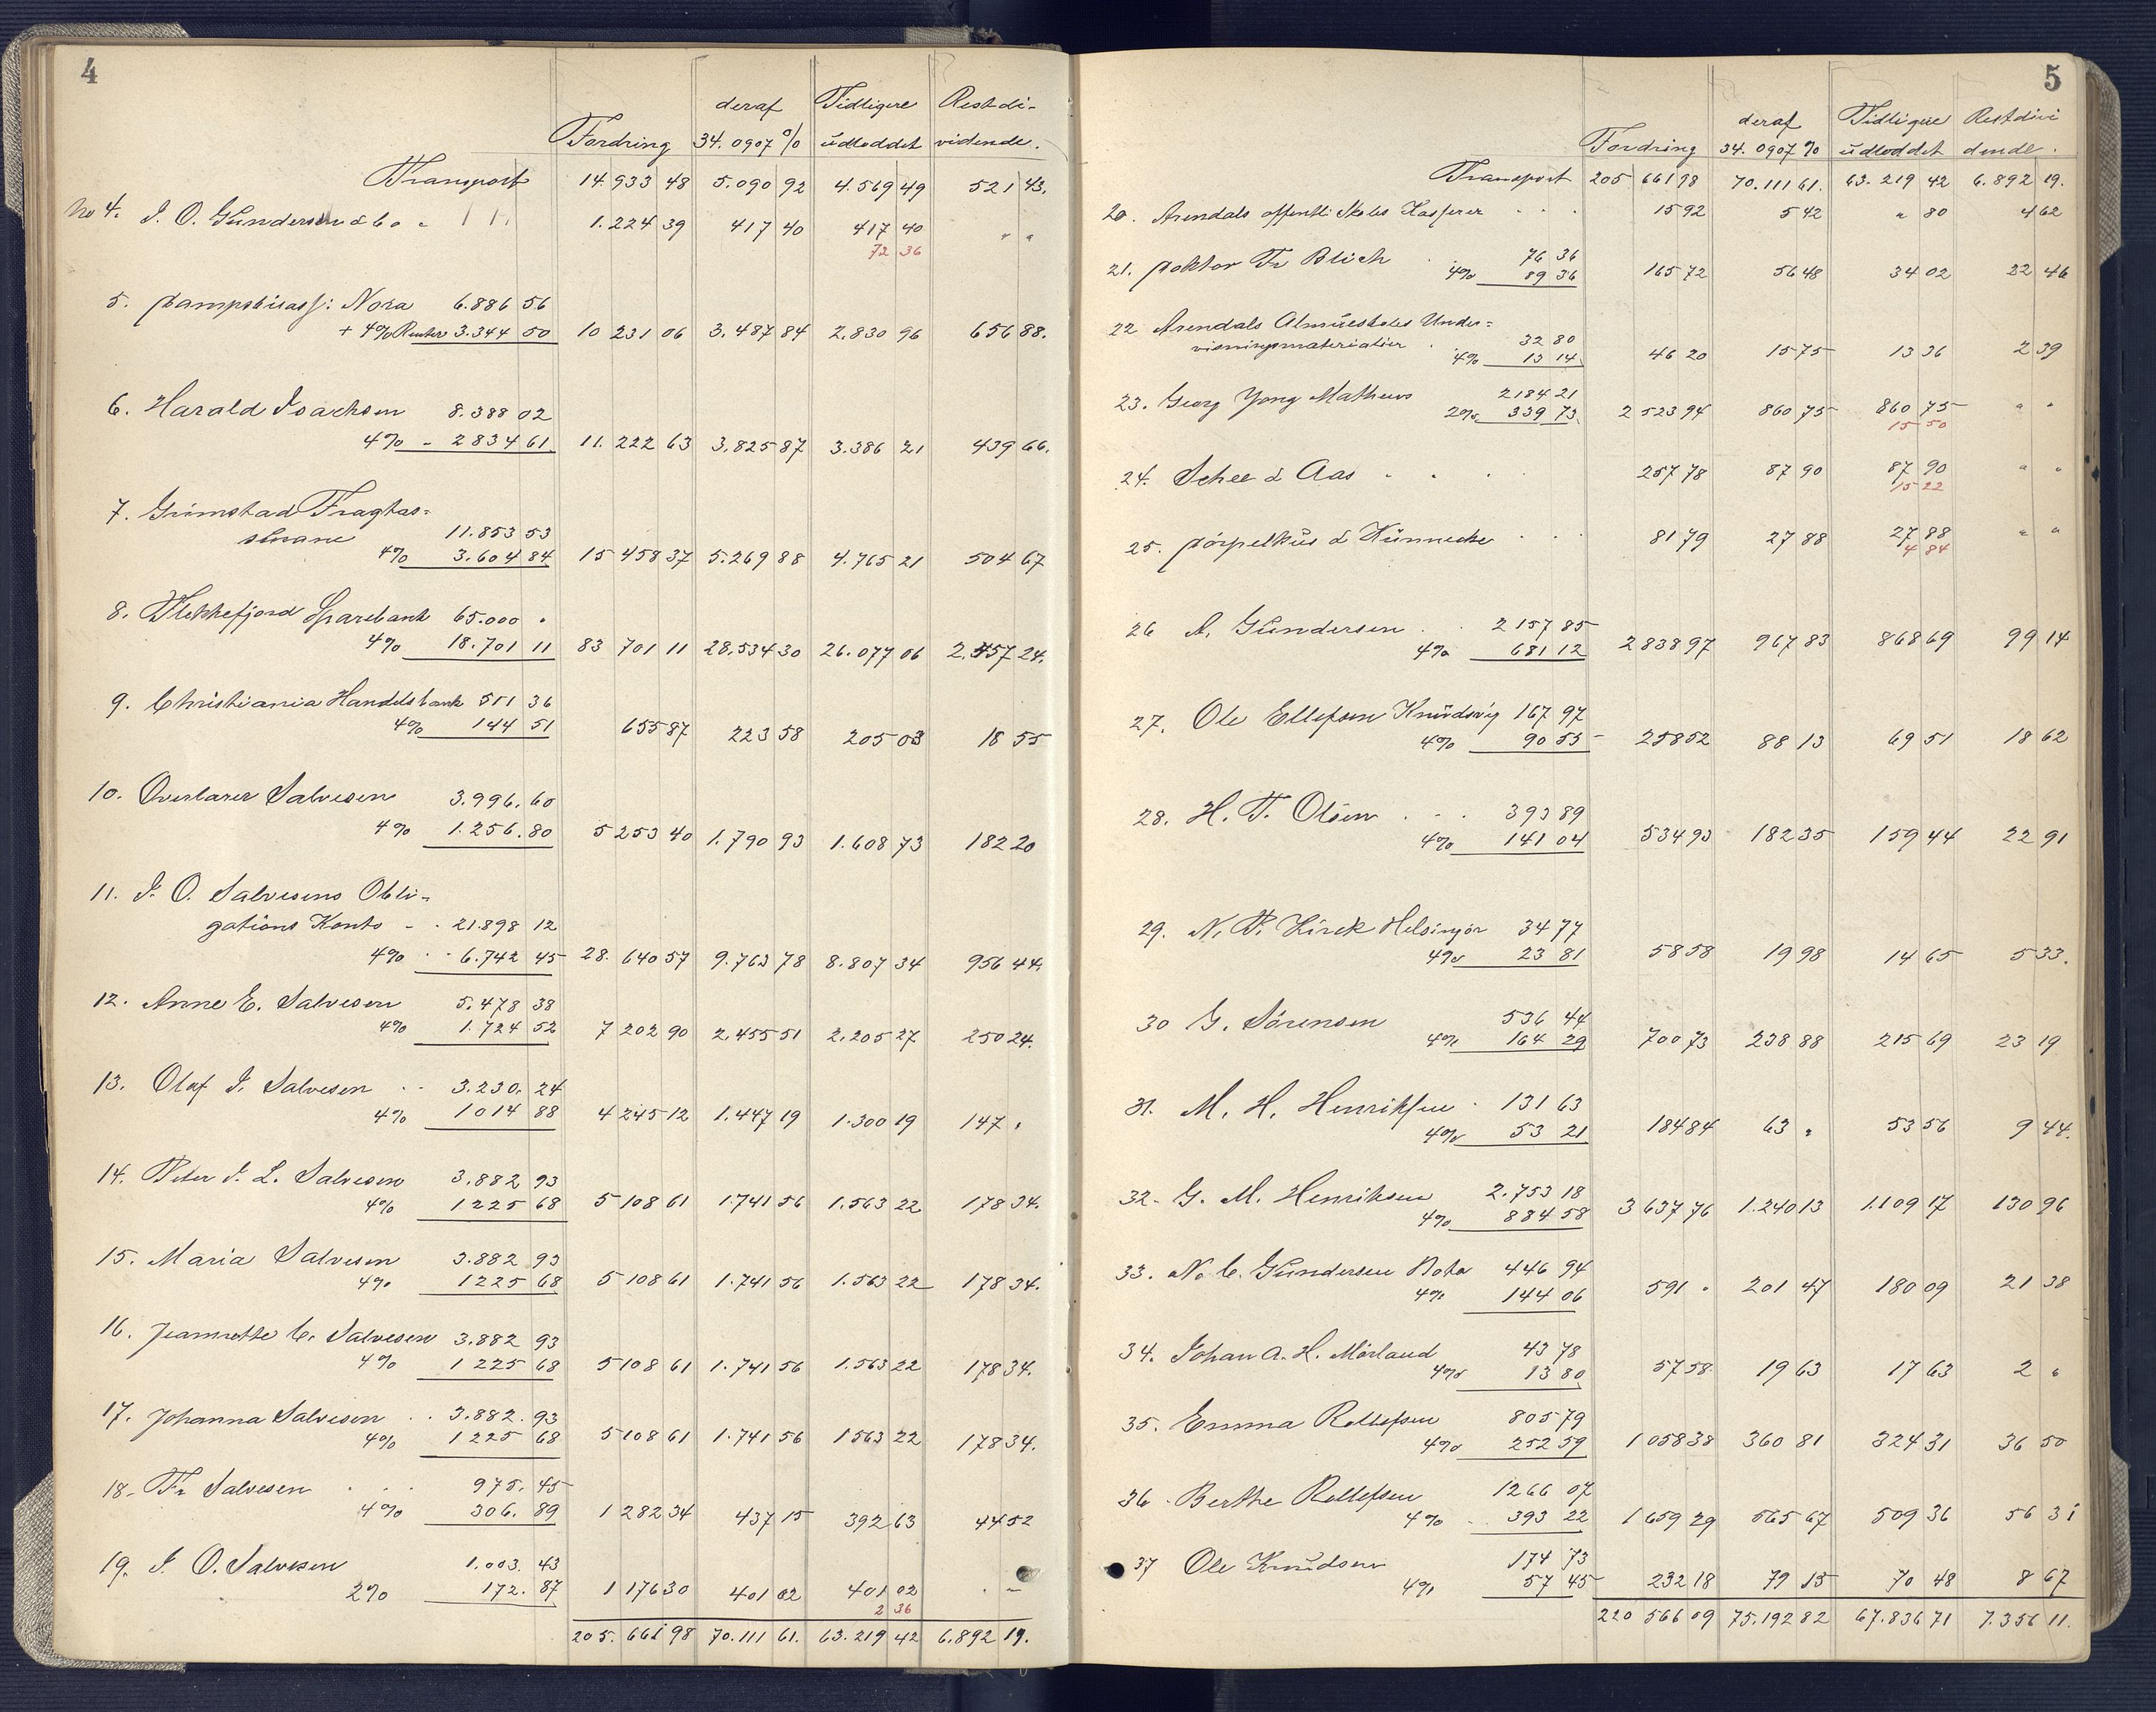 4
deraf Tidligere Restdi-
Fordring 34.0907 % udloddet vidende.
Transport 14.933 48 5.090 92 4.569 49 521 43.
No 4. J. O. Gundersen & Co 1.224 39 417 40 417 40 " "
72 36
5. Dampskibsass: Nora 6.886 56
+ 4% Renter 3.344 50 10 231 06 3.487 84 2.830 96 656 88.
6. Harald Isachsen 8.388 02
4% - 2834 61 11.222 63 3.825 87 3.386 21 439 66.
7. Grimstad Fragtas-
surance 11.853 53
4% 3.604 84 15 458 37 5.269 88 4.765 21 504 67
8. Flekkefjord Sparebank 65.000 "
4% 18.701 11 83 701 11 28.534 30 26.077 06 2.457 24.
9. Christiania Handelsbank 511 36
4% 144 51 655 87 223 58 205 03 18 55
10. Overlærer Salvesen 3.996.60
4% 1.256.80 5 253 40 1.790 93 1.608 73 182 20
11. J. O. Salvesens Obli-
gations Konto - . 21.898 12
4% . . 6.742 45 28.640 57 9.763 78 8.807 34 956 44.
12. Anne E. Salvesen 5.478 38
4% 1.724 52 7 202 90 2.455 51 2.205 27 250 24.
13. Olaf J. Salvesen . . 3.230.24
4% 1014 88 4 245 12 1.447 19 1.300 19 147 "
14. Peter J. L. Salvesen 3.882 93
4% 1225 68 5 108 61 1.741 56 1.563 22 178 34.
15. Maria Salvesen 3.882 93
4% 1225 68 5 108 61 1.741 56 1.563 22 178 34.
16. Jeannette C. Salvesen 3.882 93
4% 1 225 68 5 108 61 1.741 56 1.563 22 178 34.
17. Johanna Salvesen . . 3.882.93
4% 1 225 68 5 108 61 1.741 56 1563 22 178 34.
18. Fr Salvesen . . 975.45
4% 306.89 1 282 34 437 15 392 63 44 52
19. J. O. Salvesen 1.003.43
2% 172.87 1 176 30 401 02 401 02 . -
2 36
205.661 98 70.111 61. 63.219 42 6.892 19.
5
deraf Tidligere Restdivi
Fordring 34.0907 % udloddet dende.
Transport 205 661 98 70.111 61. 63.219 42 6.892 19.
20. Arendals offentl. Skoles Kasserer . . . 15 92 5 42 " 80 4 62
21. Doktor Fr Blich . 76 36
4% 89 36 165 72 56 48 34 02 22 46
22 Arendals Almueskoles Under-
visningsmaterialier . 32 80
4% 13 14 46 20 15 75 13 36 2 39
23. Georg Yong Mathews 2184 21
2% 339 73 2 523 94 860 75 860 75 " "
15 50
24. Schee & Aas . . . 257 78 87 90 87 90 " "
15 22
25. Dörpelkus & Künnecke . . . 81 79 27 88 27 88 " "
4 84
26 A. Gundersen . . 2 157 85
4% 681 12 2 838 97 967 83 868 69 99 14
27. Ole Ellefsen Knudsvig 167 97
4% 90 55 258 52 88 13 69 51 18 62
28. H. T. Olsen . - . 393 89
4% 141 04 534 93 182 35 159 44 22 91
29. N. P. Kirck Helsingör 34 77
4% 23 81 58 58 19 98 14 65 5 33.
30 G. Sörensen 536 44
4% 164 29 700 73 238 88 215 69 23 19
31. M. H. Henriksen . 131 63
4% 53 21 184 84 63 " 53 56 9 44.
32. G. M. Henriksen 2.753 18
4% 884 58 3 637 76 1.240 13 1.109 17 130 96
33. N. C. Gundersen Bota 446 94
4% 144 06 591 " 201 47 180 09 21 38
34. Johan A. H. Mörland 43 78
4% 13 80 57 58 19 63 17 63 2 "
35. Emma Rollefsen 805 79
4% 252 59 1 058 38 360 81 324 31 36 50
36. Berthe Rollefsen 1266 07
4% 393 22 1 659 29 565 67 509 36 56 31
37 Ole Knudsen 174 73
4% 57 45 232 18 79 15 70 48 8 67
220 566 09 75.192 82 67.836 71 7.356 11.